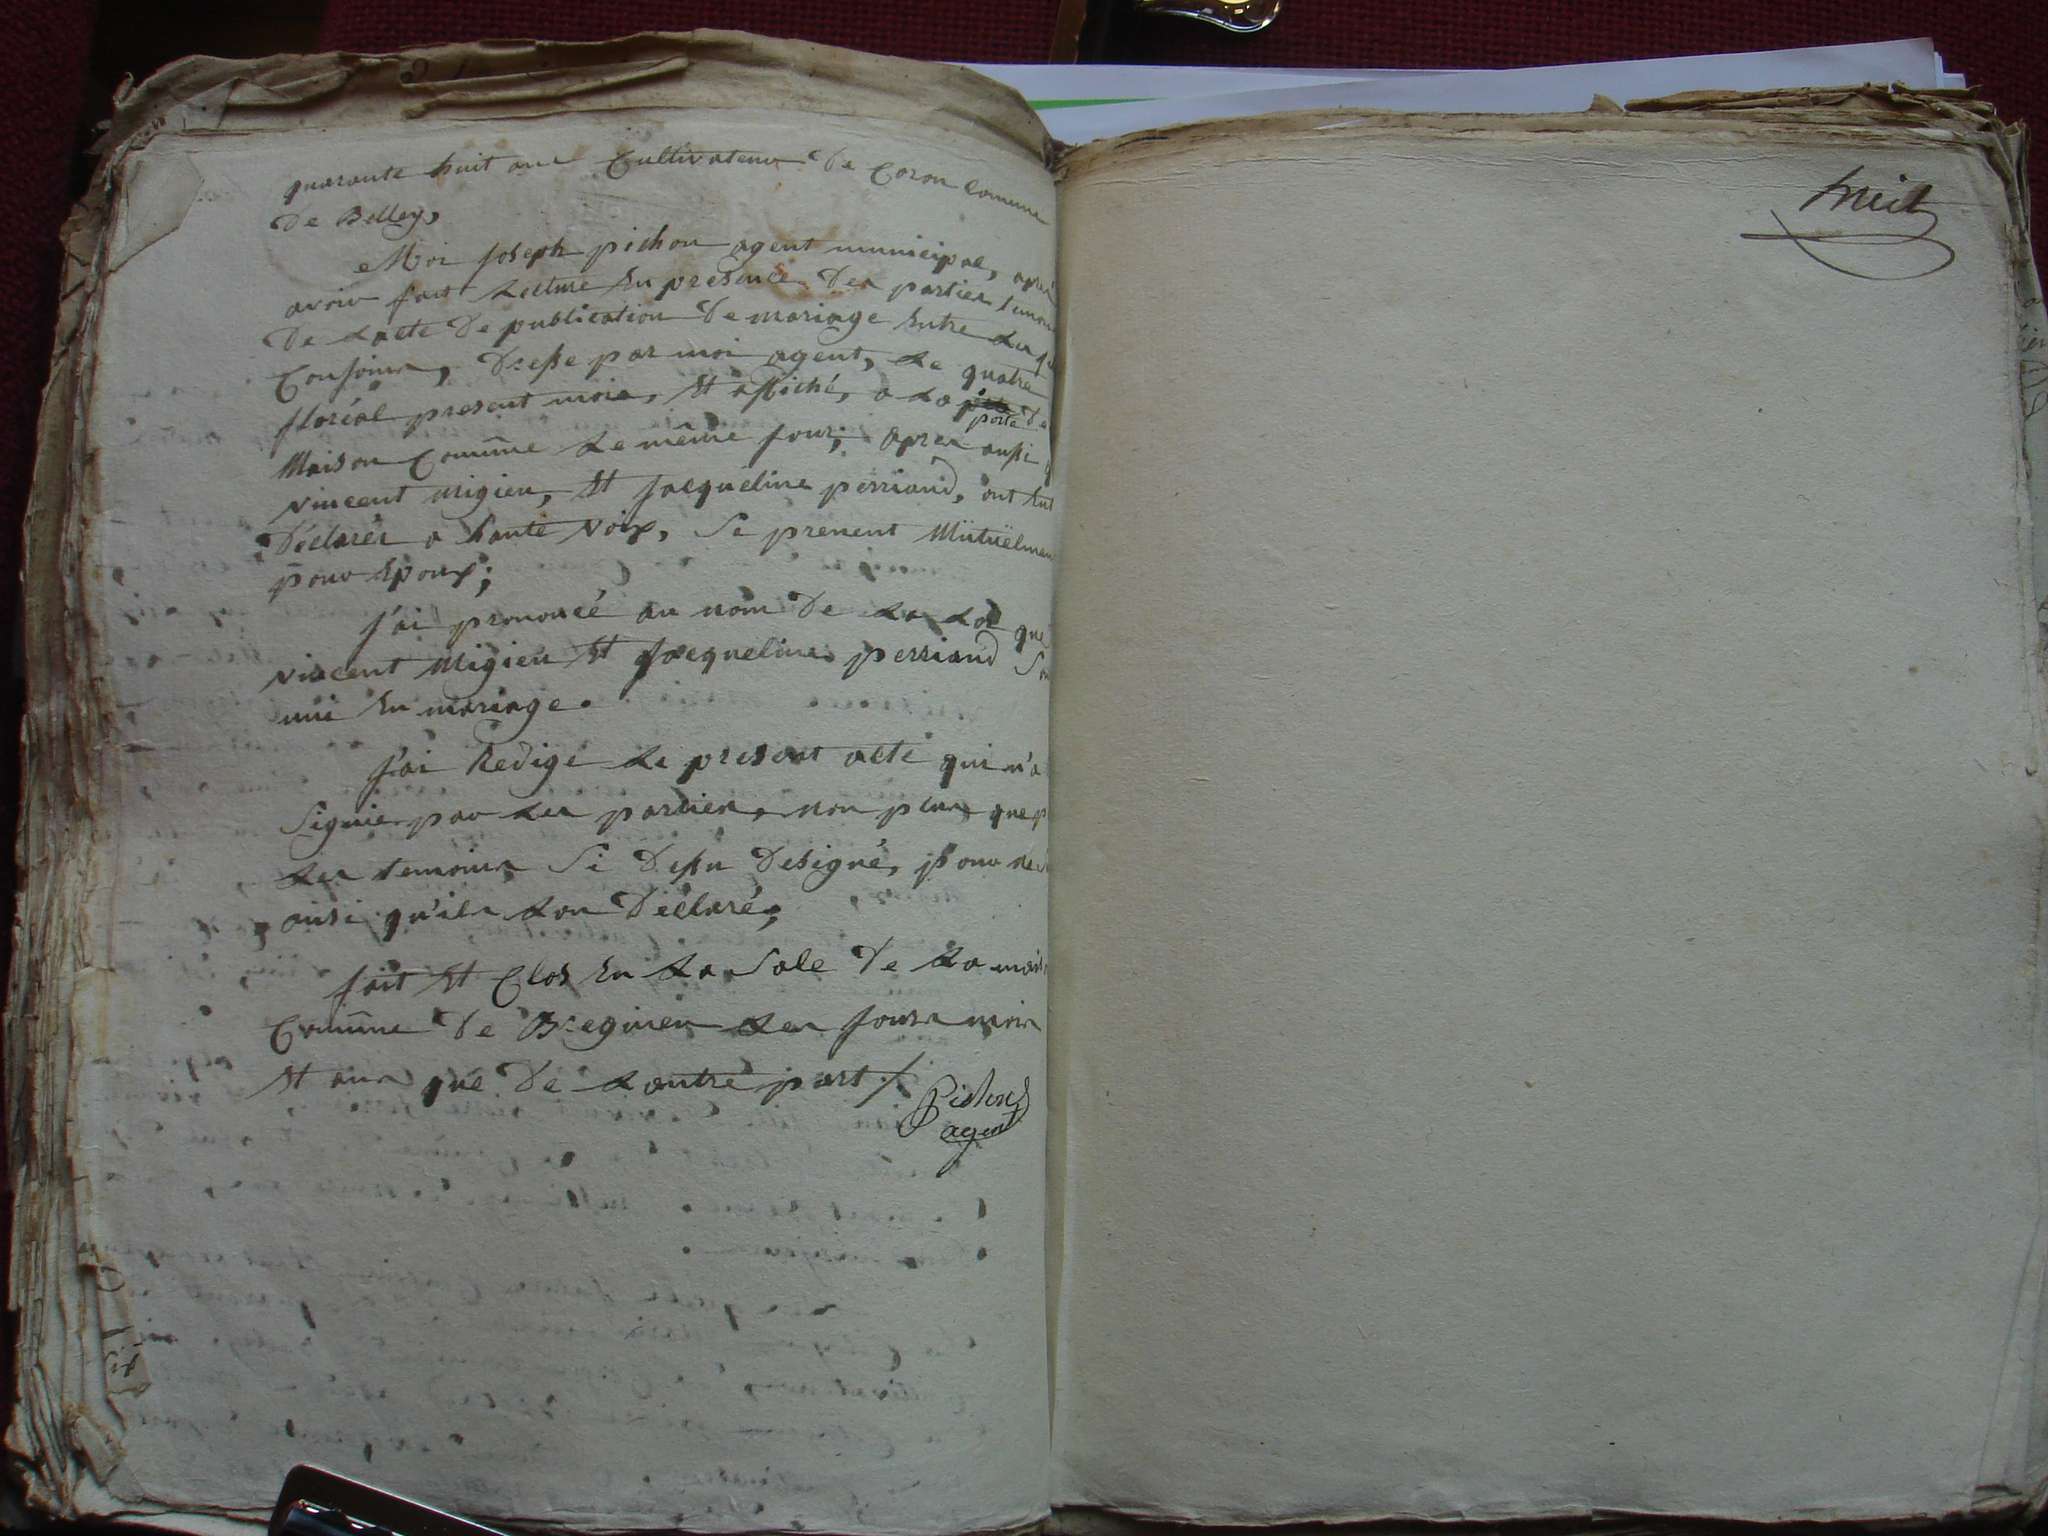 quarante huit ans Cultivateur De Coron Comune
De Belley,
Moi Joseph pichon agent municipal, après
avoir fait Lecture En presence Des parties temoins
De Lacte De publication De mariage Entre Les
Conjoins, Dressé par moi agent, Le quatre
floréal present mois, Et affiché, a La porte De
Maison Comune Le même jour; apres aussi q
vincent Migieu, Et Jacqueline perriand, ont Eut
Déclarés a haute voix, Se prenent Mutüelmen
pour Epoux;
J'ai prononcé au nom De La Loi que
vincent Migieu Et Jacqueline perriand So
uni En mariage.
J'ai Redigé Le present acte qui n'a
Signié par Les parties, non plus que p
Les temoins Si Dessu Designé, pour ne
ainsi qu'ils Lon Déclaré;
fait Et Clos En La Sale De La mais
Comune De Bregnieu Les Jours mois
Et ans que De Lautre part /.
Pichon
agent
huit
Six